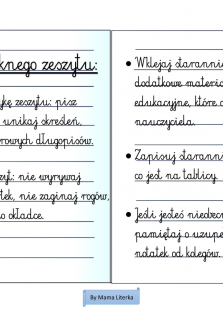 knego zeszytu:
ykę zeszytu: pisz
unikaj skreśleń.
rowych długopisów.
zyt: nie wyrywaj
tek, nie zaginaj rogów,
o okładce.
• Wklejaj starannie
dodatkowe materia
edukacyjne, które o
nauczyciela.
• Zapisuj starannie
co jest na tablicy
• Jeśli jesteś nieobecn
pamiętaj o uzupe
notatek od kolegów.
By Mama Literka